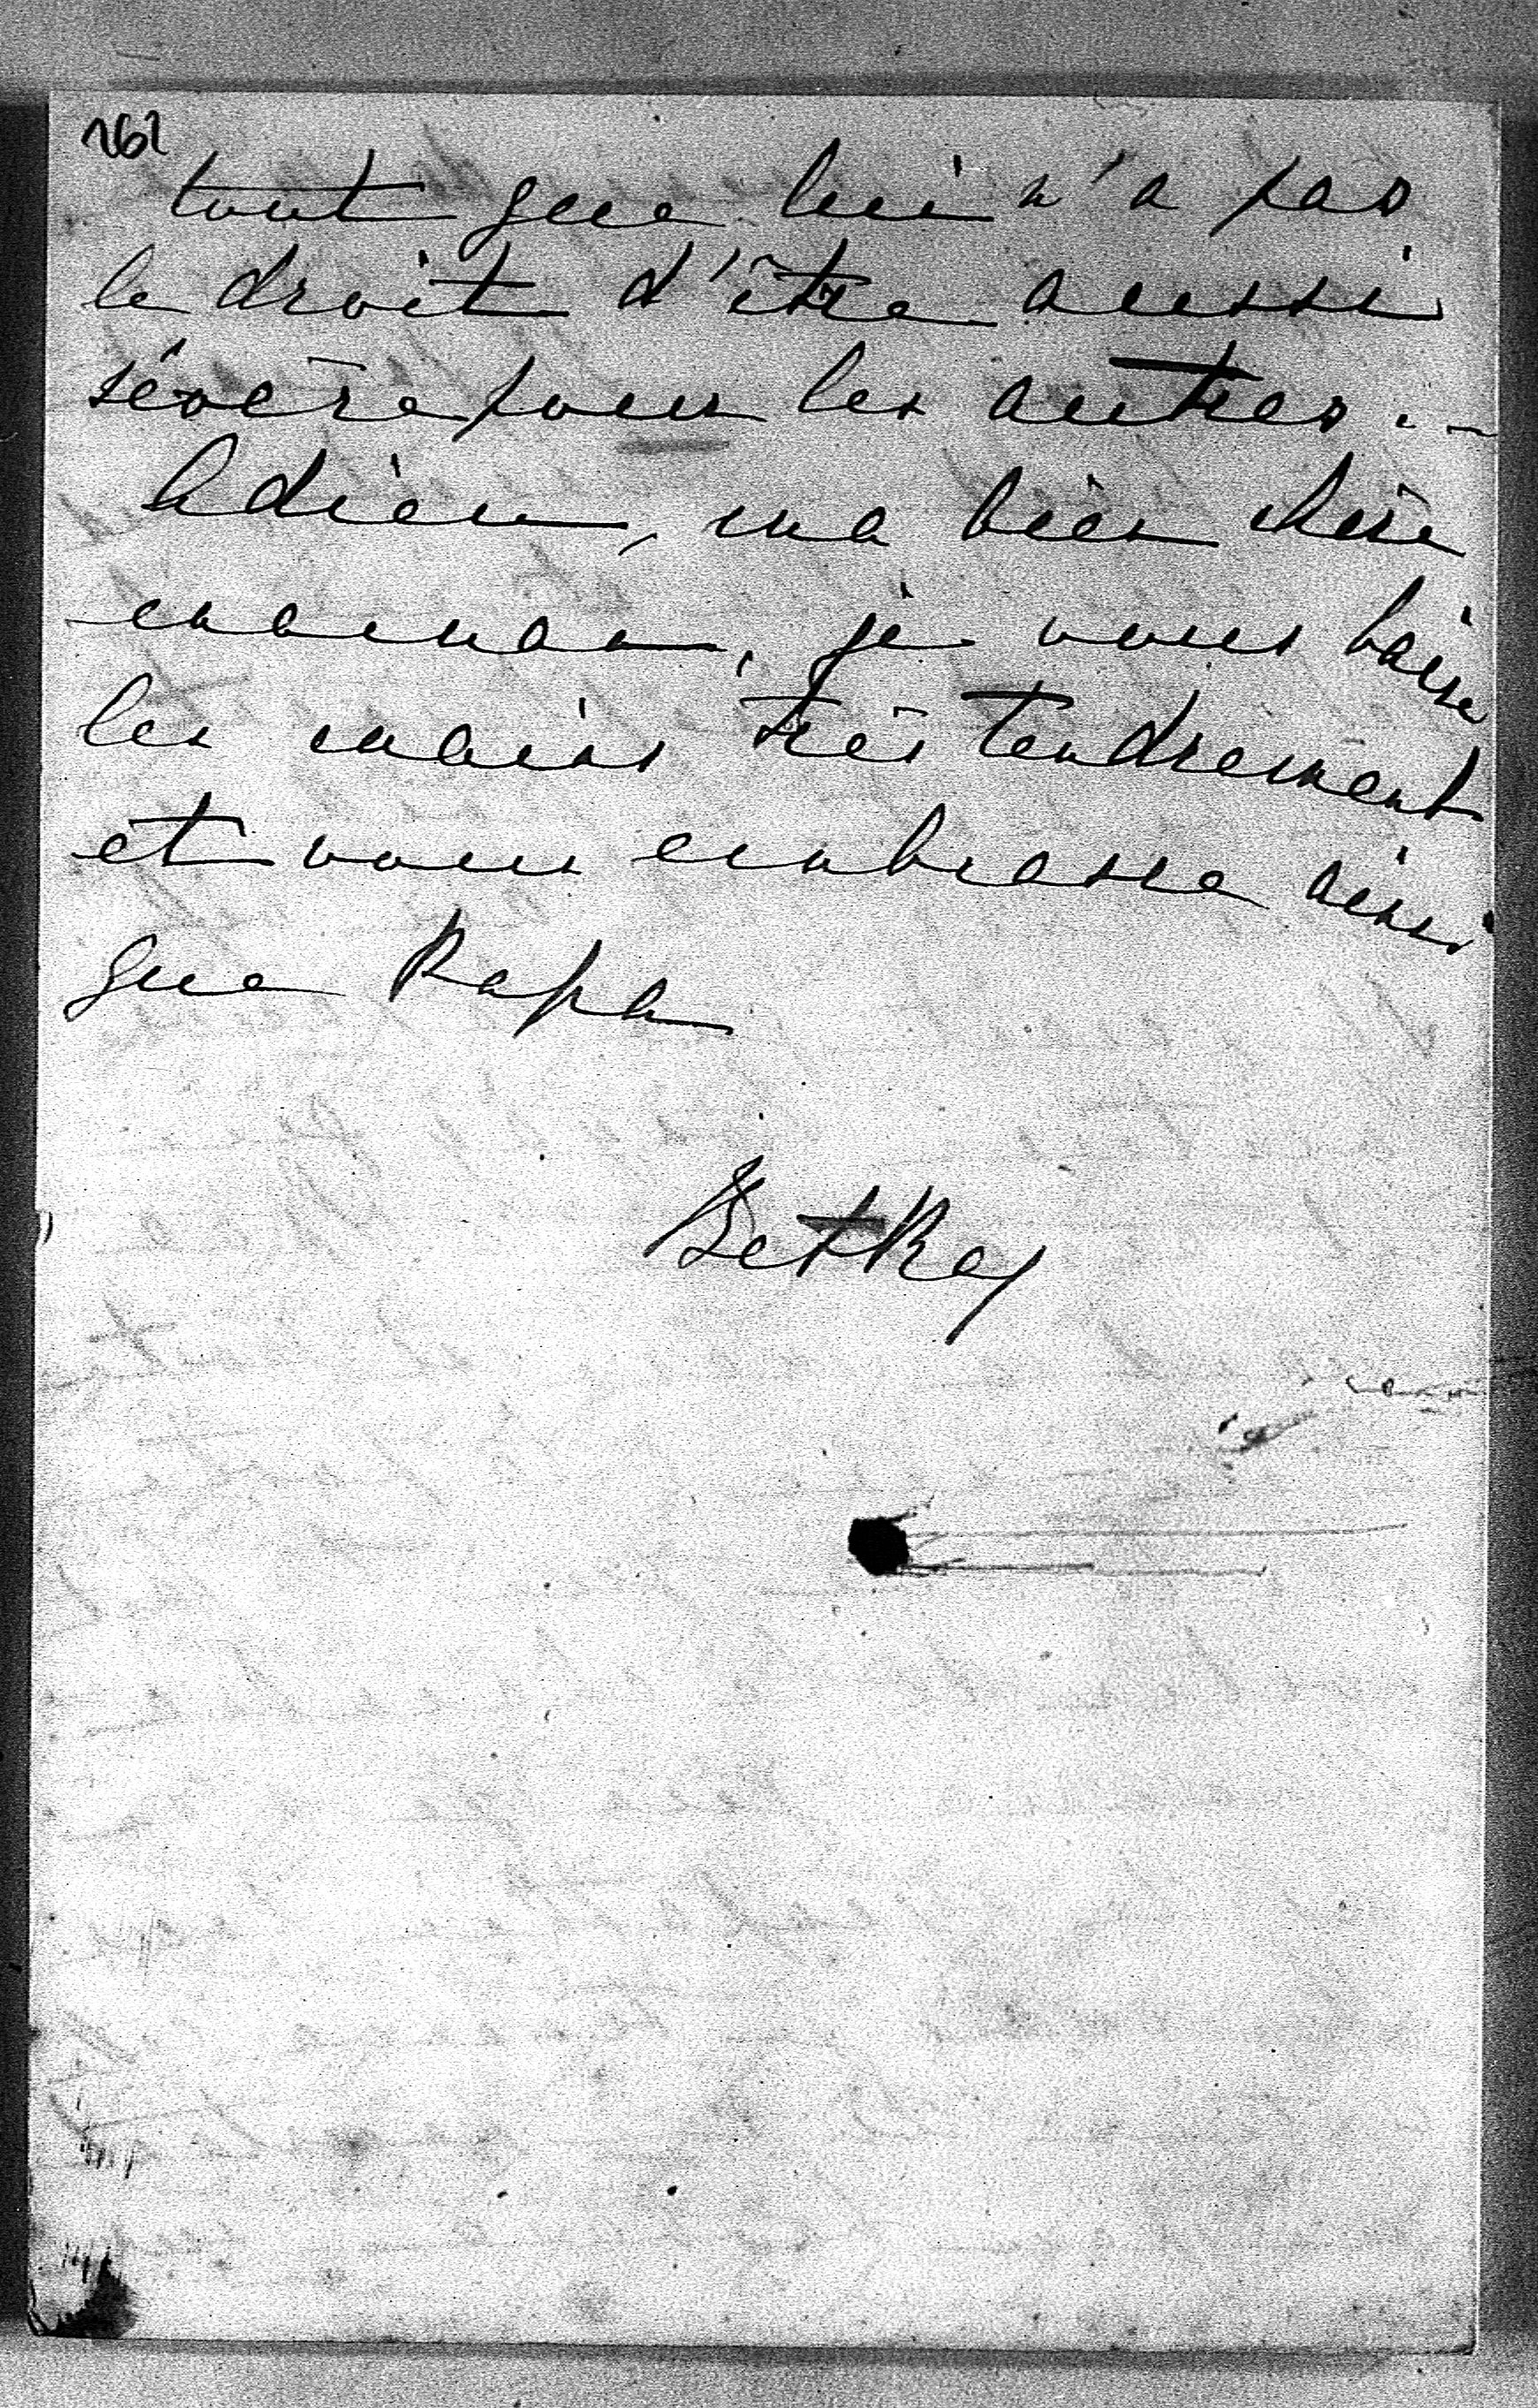 262
tout que lui n'a pas
le droit d'être aussi
sévère pour les autres. -
Adieu, ma bien chère
maman, je vous baise
les mains très tendrement
et vous embrasse ainsi
que Papa
Betsey